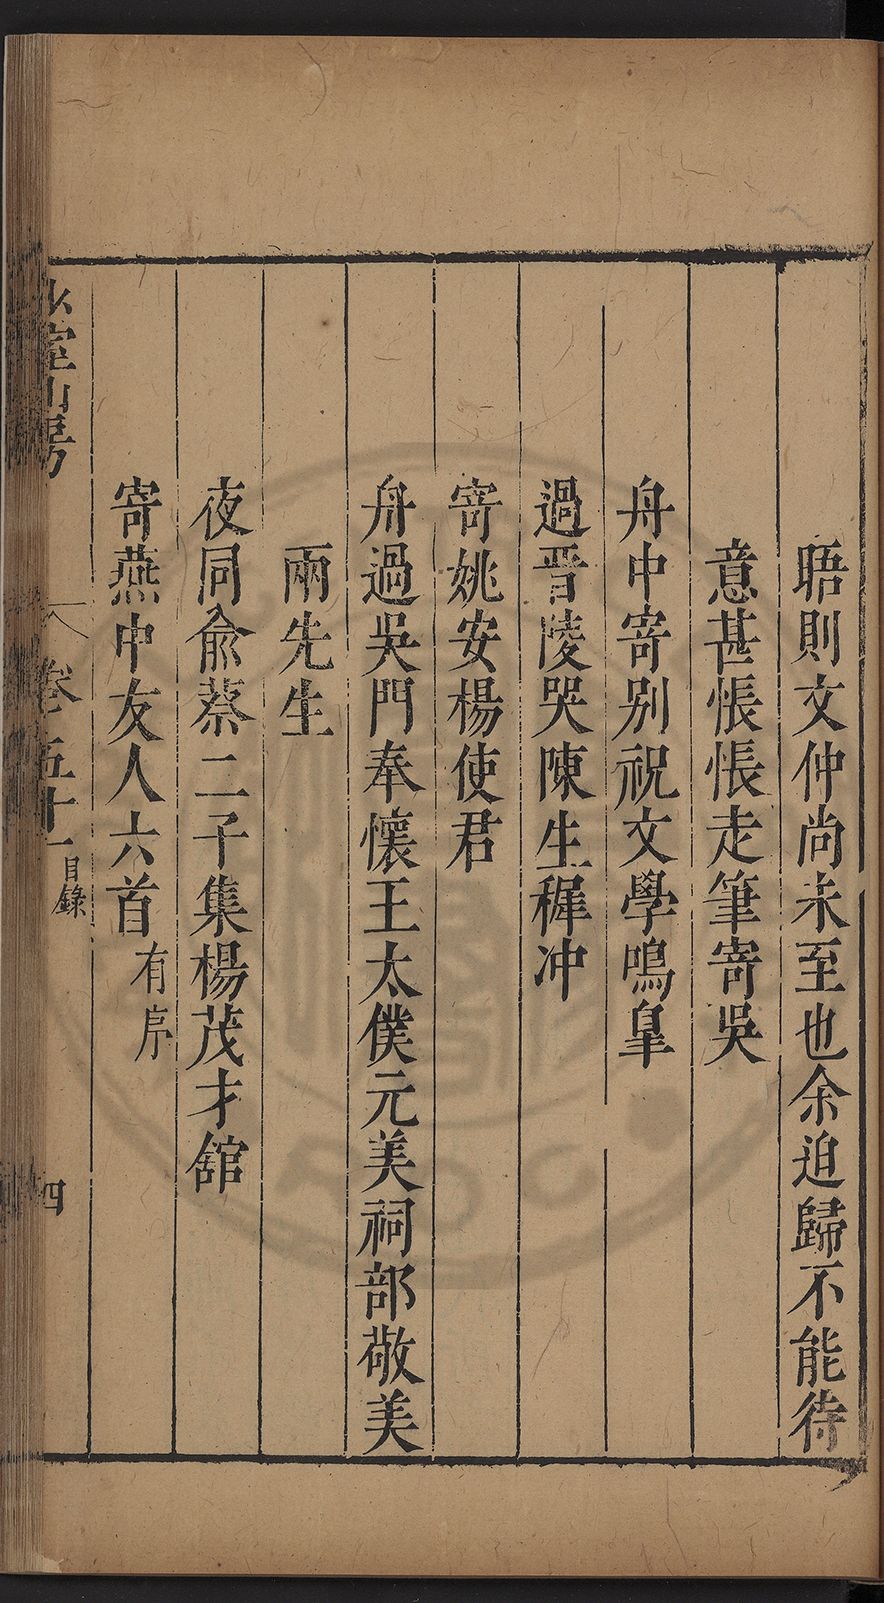 晤則文仲尚未至也余迫歸不能待
意甚悵悵走筆寄吳
舟中寄別祝文學鳴皐
過晋陵哭陳生穉冲
寄姚安楊使君
舟過吳門奉懷王太僕元美祠部敬美
兩先生
夜同俞蔡二子集楊茂才舘
寄燕中友人六首有序
少室山房
卷五十一目錄
四